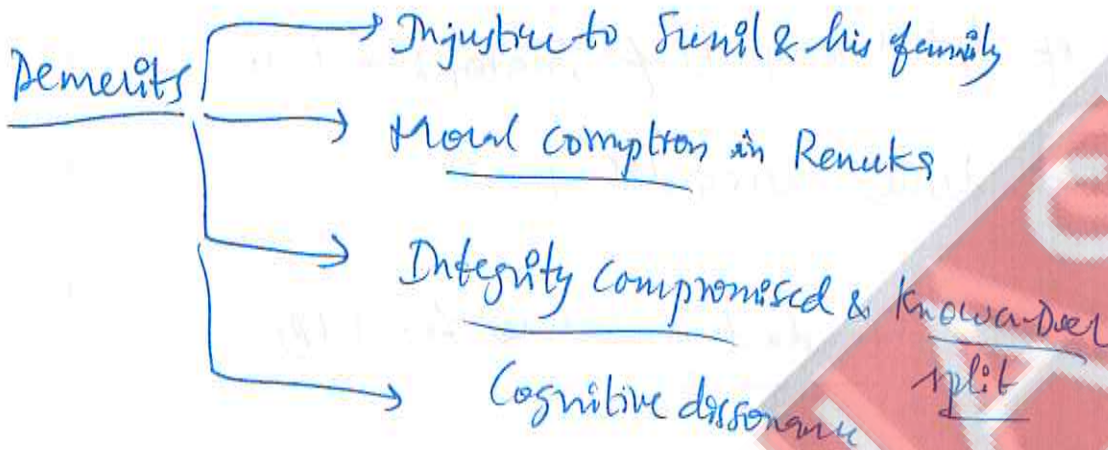 Demerits
Injustice to Sunil & his family
Moral corruption in Renuka
Integrity compromised & Knower-Doer
split
Cognitive dissonance